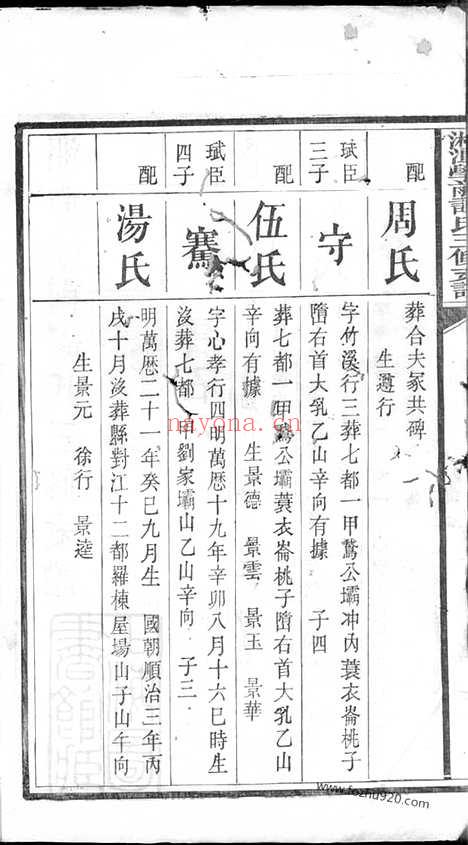 配
周氏
葬合夫冢共碑
生遵行
珷臣
三子
守
字竹溪行三葬七都一甲鵞公壩冲內蓑衣崙桃子
隋右首大乳乙山辛向有據 子四
配
伍氏
葬七都一甲鵞公壩蓑衣崙桃子隋右首大乳乙山
辛向有據 生景德 景雲 景玉 景華
珷臣
四子
騫
字心孝行四明萬歷十九年辛卯八月十六巳時生
沒葬七都一甲劉家壩山乙山辛向 子三
配
湯氏
明萬歷二十一年癸巳九月生 國朝順治三年丙
戌十月沒葬縣對江十二都羅棟屋場山子山午向
生景元 徐行 景逵
nayona.cn
www.fozhu920.com